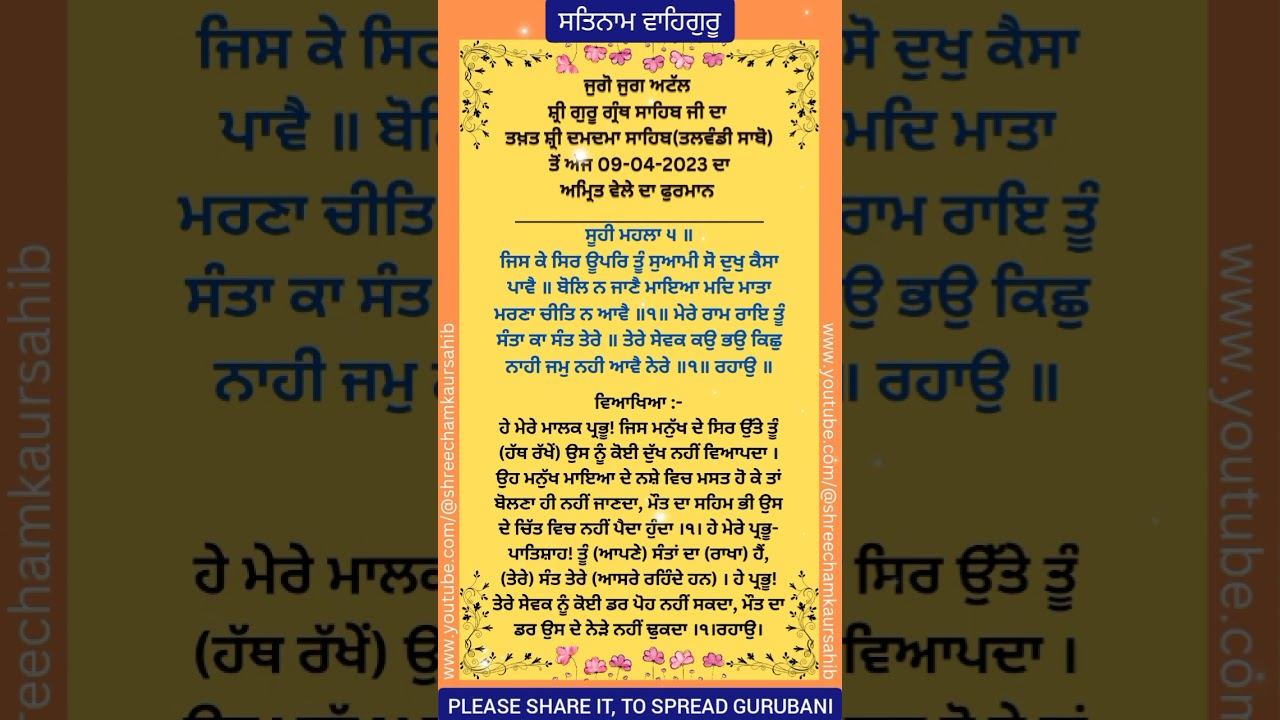 ਸਤਿਨਾਮ ਵਾਹਿਗੁਰੂ
ਜੁਗੋ ਜੁਗ ਅਟੱਲ
ਸ਼੍ਰੀ ਗੁਰੂ ਗ੍ਰੰਥ ਸਾਹਿਬ ਜੀ ਦਾ
ਤਖ਼ਤ ਸ਼੍ਰੀ ਦਮਦਮਾ ਸਾਹਿਬ(ਤਲਵੰਡੀ ਸਾਬੋ)
ਤੋਂ ਅੱਜ 09-04-2023 ਦਾ
ਅਮ੍ਰਿਤ ਵੇਲੇ ਦਾ ਫੁਰਮਾਨ
ਸੂਹੀ ਮਹਲਾ ੫ ॥
ਜਿਸ ਕੇ ਸਿਰ ਊਪਰਿ ਤੂੰ ਸੁਆਮੀ ਸੋ ਦੁਖੁ ਕੈਸਾ
ਪਾਵੈ ॥ ਬੋਲਿ ਨ ਜਾਣੈ ਮਾਇਆ ਮਦਿ ਮਾਤਾ
ਮਰਣਾ ਚੀਤਿ ਨ ਆਵੈ ॥੧॥ ਮੇਰੇ ਰਾਮ ਰਾਇ ਤੂੰ
ਸੰਤਾ ਕਾ ਸੰਤ ਤੇਰੇ ॥ ਤੇਰੇ ਸੇਵਕ ਕਉ ਭਉ ਕਿਛੁ
ਨਾਹੀ ਜਮੁ ਨਹੀ ਆਵੈ ਨੇਰੇ ॥੧॥ ਰਹਾਉ ॥
ਵਿਆਖਿਆ :-
ਹੇ ਮੇਰੇ ਮਾਲਕ ਪ੍ਰਭੂ! ਜਿਸ ਮਨੁੱਖ ਦੇ ਸਿਰ ਉੱਤੇ ਤੂੰ
(ਹੱਥ ਰੱਖੇਂ) ਉਸ ਨੂੰ ਕੋਈ ਦੁੱਖ ਨਹੀਂ ਵਿਆਪਦਾ ।
ਉਹ ਮਨੁੱਖ ਮਾਇਆ ਦੇ ਨਸ਼ੇ ਵਿਚ ਮਸਤ ਹੋ ਕੇ ਤਾਂ
ਬੋਲਣਾ ਹੀ ਨਹੀਂ ਜਾਣਦਾ, ਮੌਤ ਦਾ ਸਹਿਮ ਭੀ ਉਸ
ਦੇ ਚਿੱਤ ਵਿਚ ਨਹੀਂ ਪੈਦਾ ਹੁੰਦਾ ।੧। ਹੇ ਮੇਰੇ ਪ੍ਰਭੂ-
ਪਾਤਿਸ਼ਾਹ! ਤੂੰ (ਆਪਣੇ) ਸੰਤਾਂ ਦਾ (ਰਾਖਾ) ਹੈਂ,
(ਤੇਰੇ) ਸੰਤ ਤੇਰੇ (ਆਸਰੇ ਰਹਿੰਦੇ ਹਨ) । ਹੇ ਪ੍ਰਭੂ!
ਤੇਰੇ ਸੇਵਕ ਨੂੰ ਕੋਈ ਡਰ ਪੋਹ ਨਹੀਂ ਸਕਦਾ, ਮੌਤ ਦਾ
ਡਰ ਉਸ ਦੇ ਨੇੜੇ ਨਹੀਂ ਢੁਕਦਾ ।੧।ਰਹਾਉ।
www.youtube.com/@shreechamkaursahib
www.youtube.com/@shreechamkaursahib
PLEASE SHARE IT, TO SPREAD GURUBANI